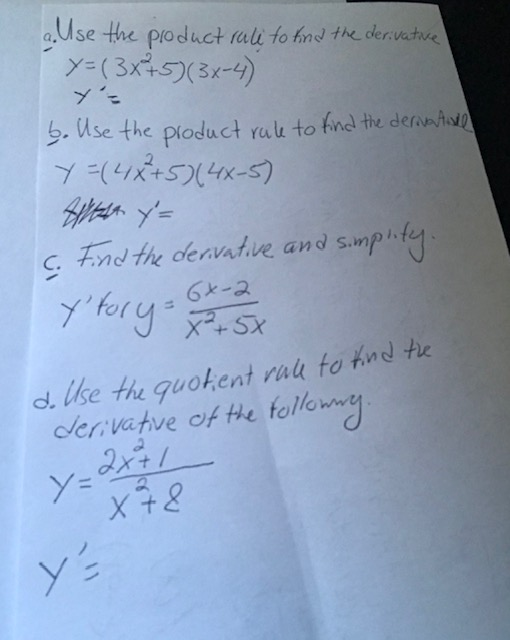 a. Use the product rule to find the derivative
y=(3x²+5)(3x-4)
y'=
b. Use the product rule to find the derivative
y=(4x²+5)(4x-5)
y'=
c. Find the derivative and simplify.
y' for y = 6x-2 / x²+5x
d. Use the quotient rule to find the
derivative of the following.
y = 2x²+1 / x²+8
y'=